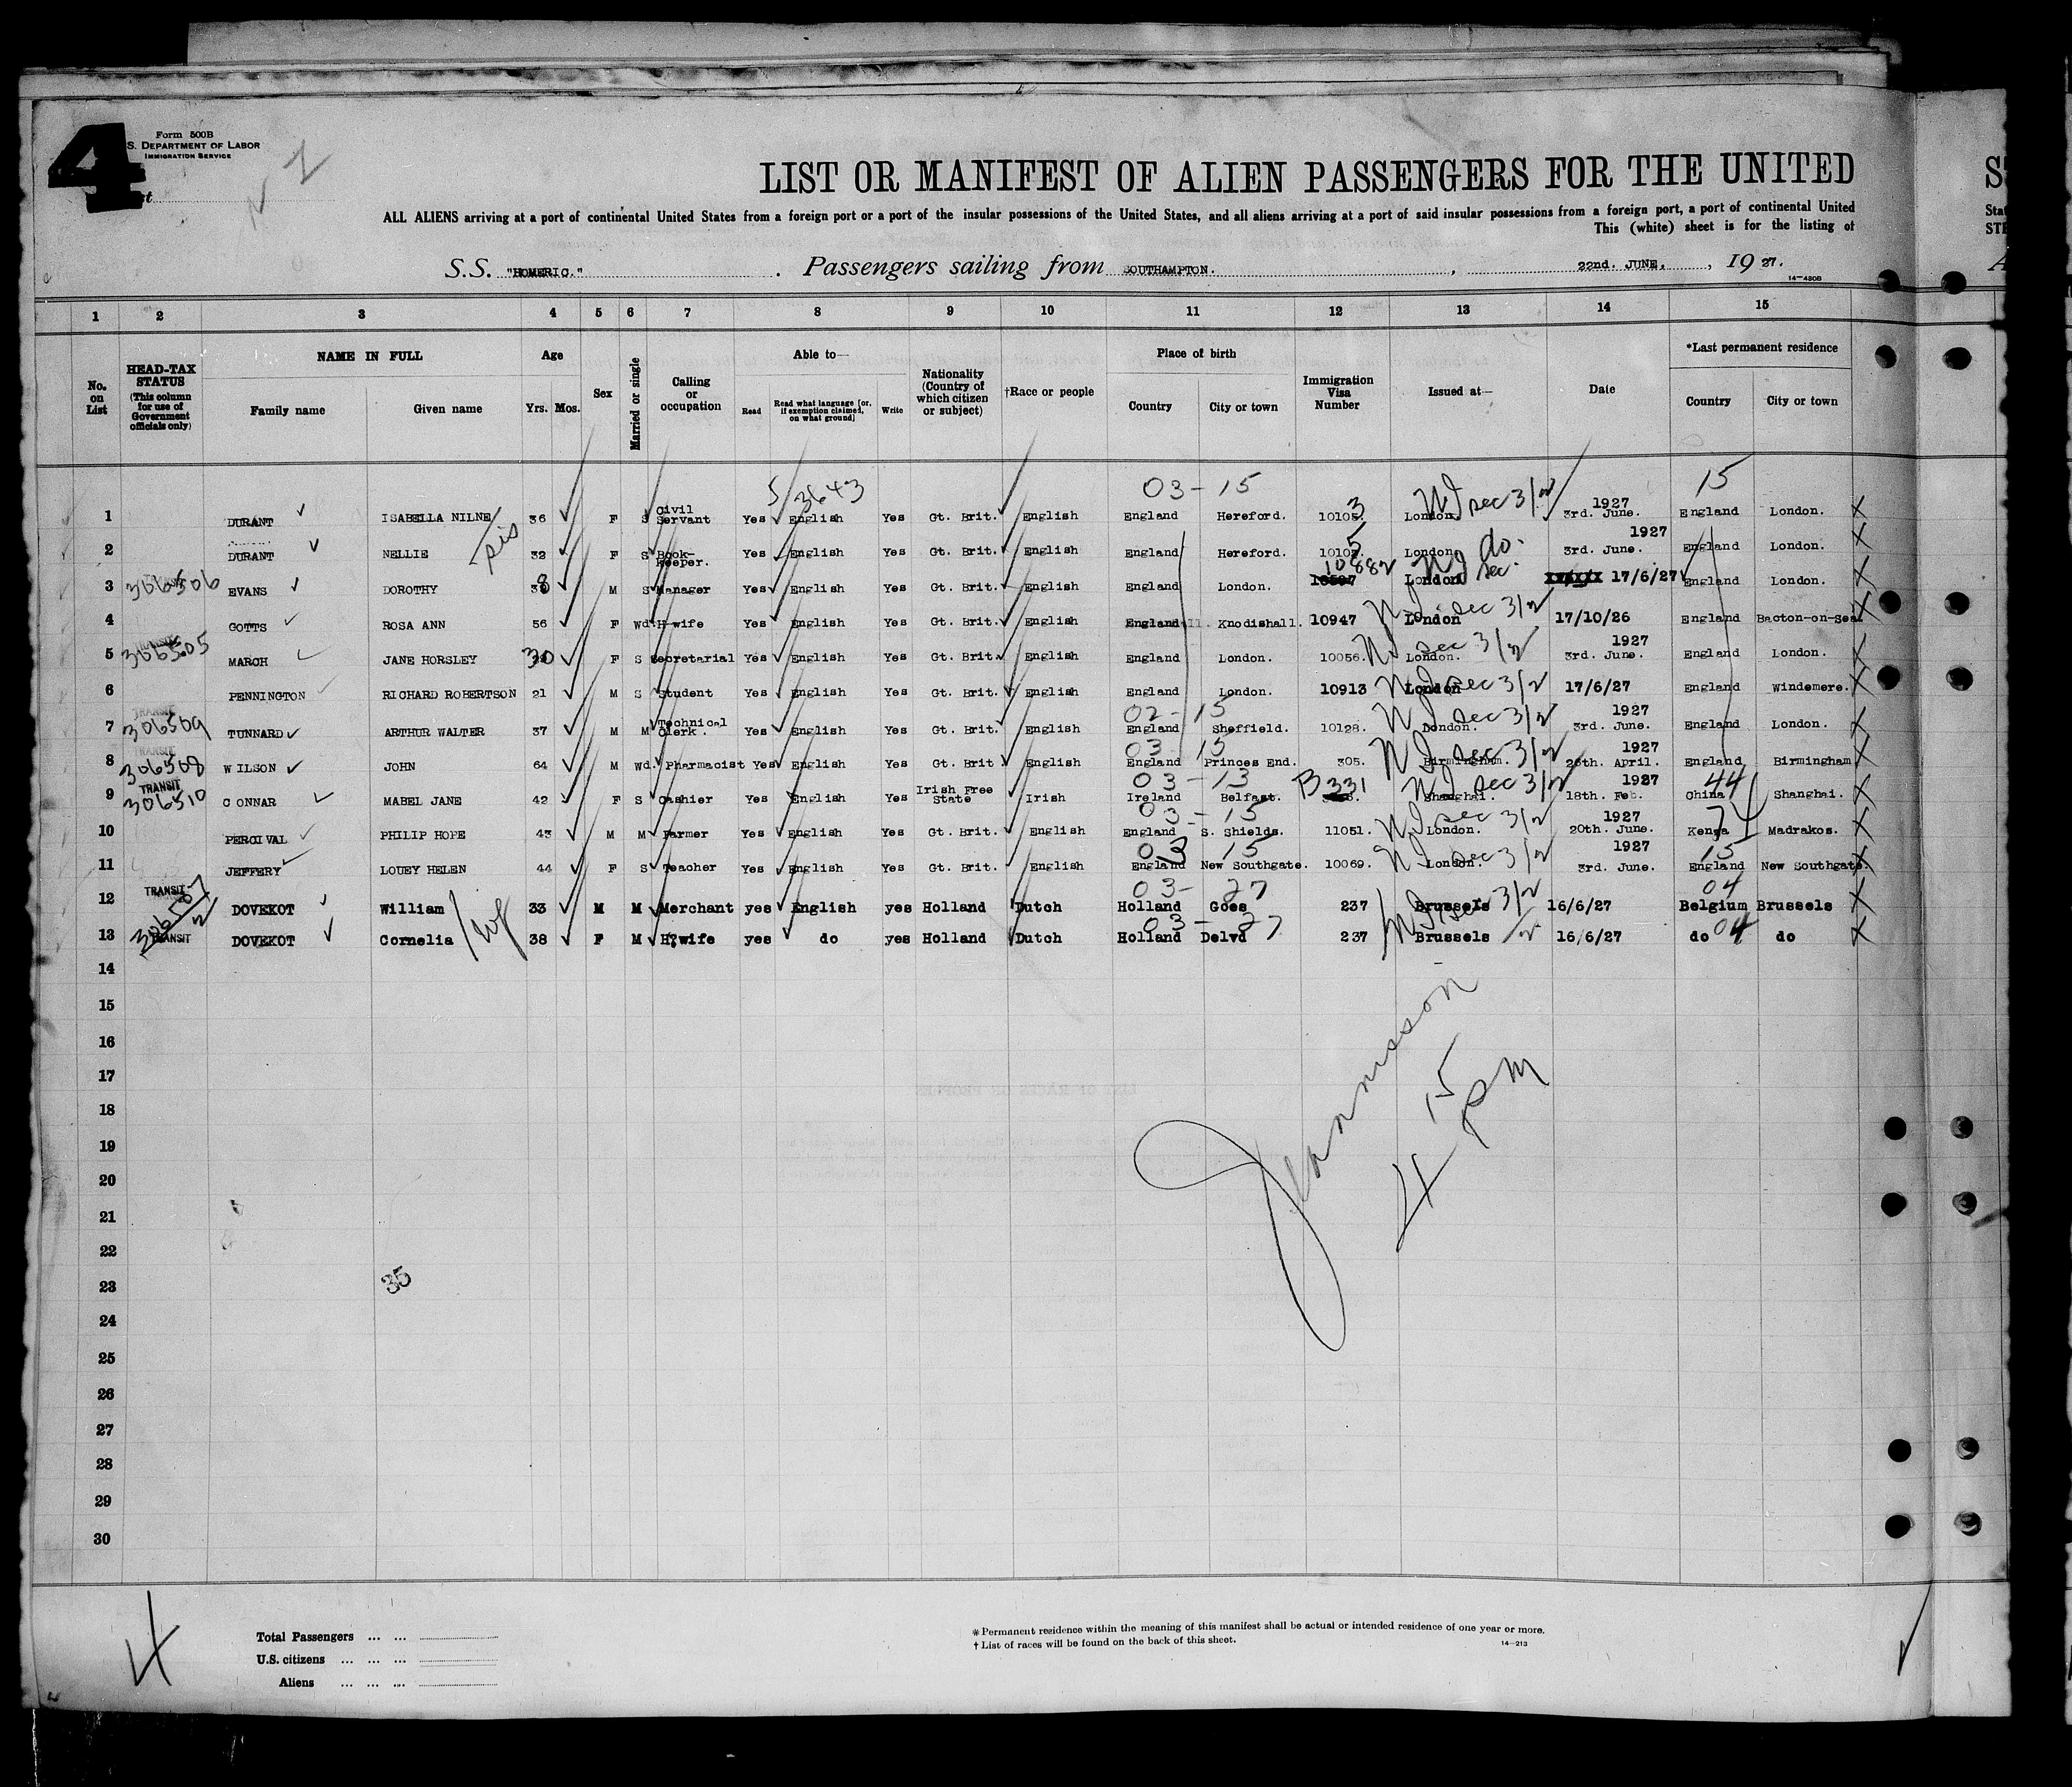 4
Form 500B
S. DEPARTMENT OF LABOR
IMMIGRATION SERVICE
LIST OR MANIFEST OF ALIEN PASSENGERS FOR THE UNITED
ALL ALIENS arriving at a port of continental United States from a foreign port or a port of the insular possessions of the United States, and all aliens arriving at a port of said insular possessions from a foreign port, a port of continental United
This (white) sheet is for the listing of
S.S. "HOMERIC." Passengers sailing from SOUTHAMPTON. , 22nd. JUNE, , 19 27.
14-430B
1 2 3 4 5 6 7 8 9 10 11 12 13 14 15
No. on List
HEAD-TAX STATUS (This column for use of Government officials only)
NAME IN FULL
Family name Given name
Age
Yrs. Mos.
Sex
Married or single
Calling or occupation
Able to—
Read Read what language [or, if exemption claimed, on what ground] Write
Nationality (Country of which citizen or subject)
†Race or people
Place of birth
Country City or town
Immigration Visa Number
Issued at—
Date
*Last permanent residence
Country City or town
5/3643 03-15 15
1 DURANT ISABELLA NILNE 36 F S Civil Servant Yes English Yes Gt. Brit. English England Hereford. London. 1927 3rd. June. England London.
sis
2 DURANT NELLIE 32 F S Book-keeper. Yes English Yes Gt. Brit. English England Hereford. London 1927 3rd. June. England London.
3 306506 EVANS DOROTHY 38 M S Manager Yes English Yes Gt. Brit. English England London. 10882 London 17/6/27 England London.
4 GOTTS ROSA ANN 56 F Wd H-wife Yes English Yes Gt. Brit. English England Knodishall. 10947 London 17/10/26 England Bacton-on-Sea
5 306505 MARCH JANE HORSLEY 30 F S Secretarial Yes English Yes Gt. Brit. English England London. 10056. London. 1927 3rd. June. England London.
6 PENNINGTON RICHARD ROBERTSON 21 M S Student Yes English Yes Gt. Brit. English England London. 10913 London 17/6/27 England Windemere.
02-15
7 TRANSIT 306509 TUNNARD ARTHUR WALTER 37 M M Technical Clerk. Yes English Yes Gt. Brit. English England Sheffield. 10128. London. 1927 3rd. June. England London.
03 15
8 TRANSIT 306508 WILSON JOHN 64 M Wd. Pharmacist Yes English Yes Gt. Brit English England Princes End. 305. Birmingham. 1927 26th. April. England Birmingham
03-13 44
9 TRANSIT 306510 CONNAR MABEL JANE 42 F S Cashier Yes English Yes Irish Free State Irish Ireland Belfast. B331 Shanghai. 1927 18th. Feb. China Shanghai.
03-15 74
10 PERCIVAL PHILIP HOPE 43 M M Farmer Yes English Yes Gt. Brit. English England S. Shields. 11051. London. 1927 20th. June. Kenya Madrakos.
03 15 15
11 JEFFERY LOUEY HELEN 44 F S Teacher Yes English Yes Gt. Brit. English England New Southgate. 10069. London. 1927 3rd. June. England New Southgate.
03-27 04
12 TRANSIT DOVEKOT William 33 M M Merchant yes English yes Holland Dutch Holland Goes 237 Brussels 16/6/27 Belgium Brussels
03-27
13 TRANSIT DOVEKOT Cornelia wf 38 F M H.wife yes do yes Holland Dutch Holland Delvd 237 Brussels 16/6/27 do 04 do
14
15
16
17
18
19
20
21
22
23
24
25
26
27
28
29
30
4 15 PM
35
4
Total Passengers ... ...
U.S. citizens ... ... ...
Aliens ... ... ...
* Permanent residence within the meaning of this manifest shall be actual or intended residence of one year or more.
† List of races will be found on the back of this sheet. 14-213